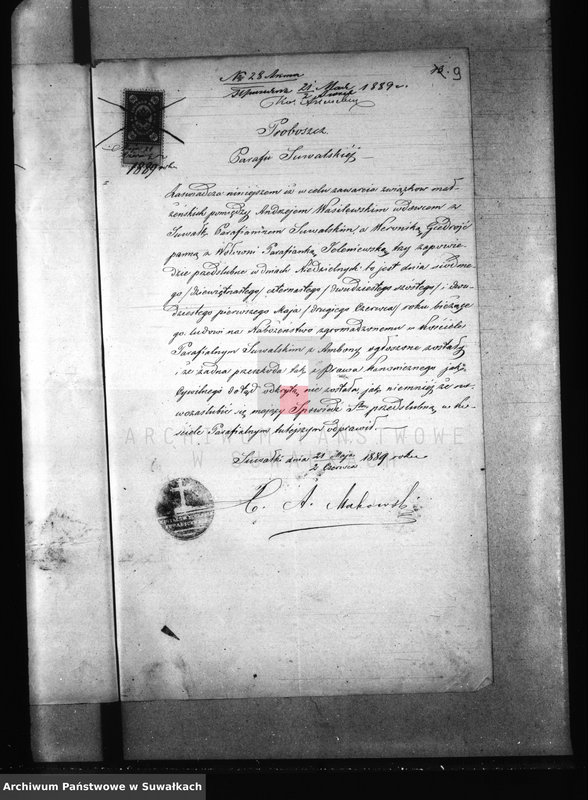 No 28 Anna
21 Maja 1889 r.
2 Czerwca
9
Proboszcz
Parafii Suwalskiéj
21
1889 roku
Zaświadcza niniejszem iż w celu zawarcia związków mał-
żeńskich pomiędzy Andrzejem Wasilewskim wdowcem z
Suwałk Parafianinem Suwalskim, a Weroniką Giedrojć
panną z Wólowni Parafianką Jeleniewską, trzy zapowie-
dzie przedślubne w dniach Niedzielnych: to jest dnia siódme-
go /dziewiętnastego/ czternastego /dwudziestego szóstego/ i dwu-
dziestego pierwszego Maja /drugiego Czerwca/ roku bieżące-
go, ludowi na Nabożeństwo zgromadzonemu w Kościele
Parafialnym Suwalskim z Ambony ogłoszone zostały
i że żadna przeszkoda tak z Prawa kanonicznego jak
Cywilnego dotąd odkrytą nie została jak niemniéj że no-
wozaślubić się mający Spowiedź Stą przedślubną w Ko-
ściele Parafialnym tutejszym odprawił.
Suwałki dnia 21 Maja 1889 roku
2 Czerwca
X. A. Makowski
ARCHIWUM PAŃSTWOWE
W SUWAŁKACH
Archiwum Państwowe w Suwałkach